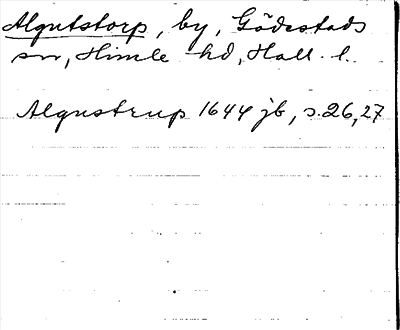 Algutstorp, by, Gödestads
sn, Himle hd, Hall. l.
Algustrup 1644 jb, s. 26, 27